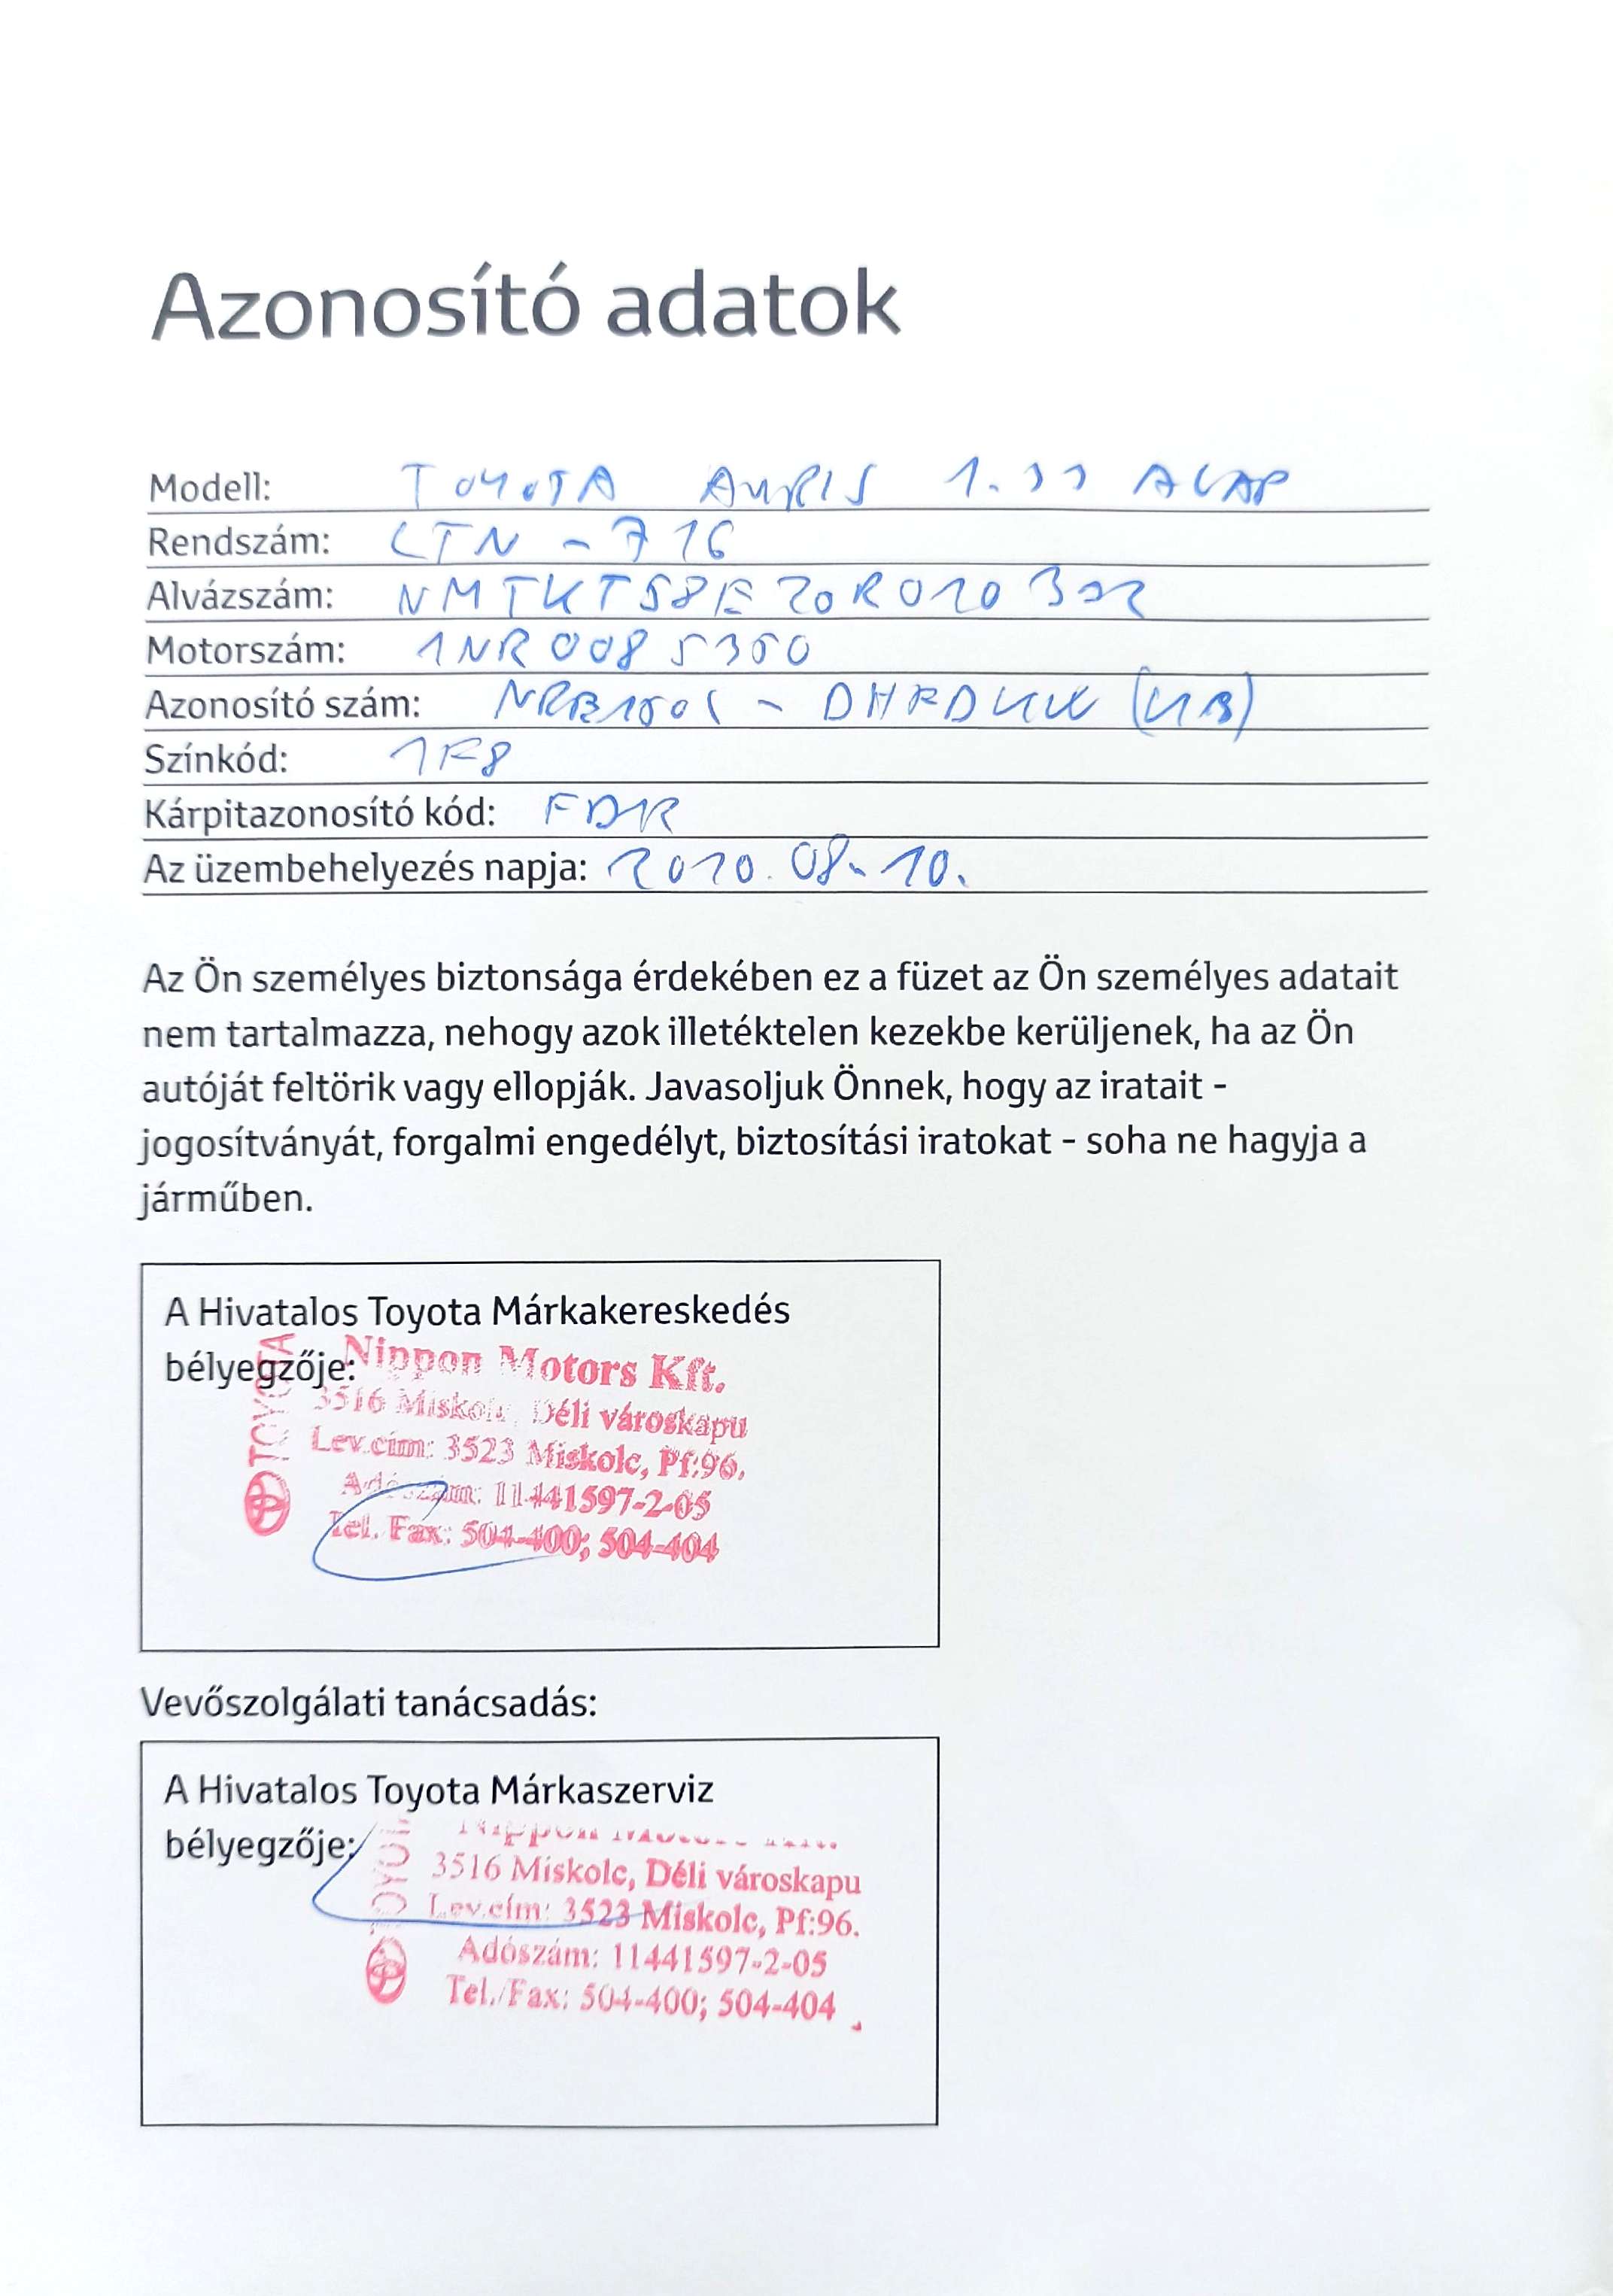 Azonosító adatok
Modell: TOYOTA AURIS 1.33 ALAP
Rendszám: LTN - 716
Alvázszám: NMTKT58E20R010322
Motorszám: 1NR0085350
Azonosító szám:
Színkód: 1F8
Kárpitazonosító kód: FDR
Az üzembehelyezés napja: 2010.08.10.
Az Ön személyes biztonsága érdekében ez a füzet az Ön személyes adatait
nem tartalmazza, nehogy azok illetéktelen kezekbe kerüljenek, ha az Ön
autóját feltörik vagy ellopják. Javasoljuk Önnek, hogy az iratait -
jogosítványát, forgalmi engedélyt, biztosítási iratokat - soha ne hagyja a
járműben.
A Hivatalos Toyota Márkakereskedés
bélyegzője:
TOYOTA
Nippon Motors Kft.
3516 Miskolc, Déli városkapu
Lev.cím: 3523 Miskolc, Pf:96.
Adószám: 11441597-2-05
Tel. Fax: 504-400; 504-404
Vevőszolgálati tanácsadás:
A Hivatalos Toyota Márkaszerviz
bélyegzője:
Nippon Motors Kft.
3516 Miskolc, Déli városkapu
Lev.cím: 3523 Miskolc, Pf:96.
Adószám: 11441597-2-05
Tel./Fax: 504-400; 504-404